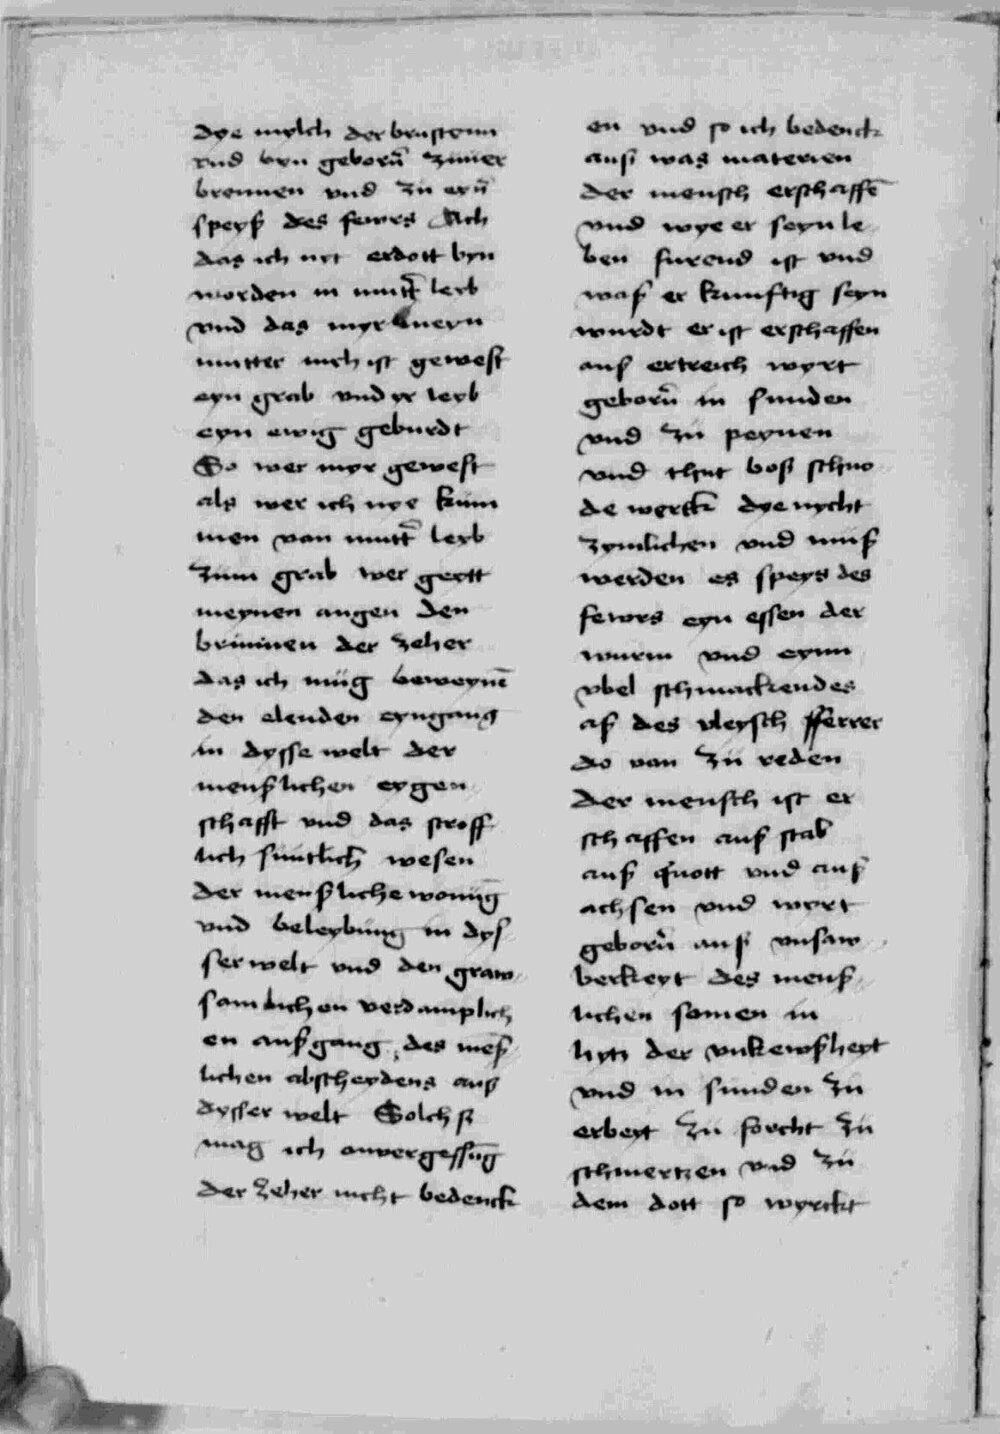 dye mylch der brustenn
vnd byn geborn̄ zuuer
brennen vnd zu eyn̄
speyß des fewrs Ach
das ich nyt erdott byn
worden in mutt̄ leyb
vnd das myr meyn
mutter nich ist gewest
eyn grab vnd yr leyb
eyn ewig geburdt
So wer myr gewest
als wer ich nye kum
men van mutt̄ leyb
zum grab wer geytt
meynen augen den
brunnen der zeher
das ich müg beweynē
den elenden eyngang
in dysse welt der
menslichen eygen
schafft vnd das stroff
lich suntlich wesen
der menßliche wonūg
vnd beleybung in dys
ser welt vnd den graw
samlichen verdamplich
en außgang des mēß
lichen abscheydens auß
dysser welt Solchß
mag ich onvergessūg
der zeher nicht bedenck
en vnd so ich bedenck
auß was materien
der mensch erschaffē
vnd wye er seyn le
ben furend ist vnd
waß er kunftig seyn
wurdt er ist erschaffen
auß ertreich wyrt
geborn̄ in sunden
vnd zu peynen
vnd thut boß schno
de werck dye nycht
zymlichen vnd muß
werden es speys des
fewrs eyn essen der
wurm vnd eynn
vbel schmackendes
aß des vleysch fferrer
do van zu reden
der mensch ist er
schaffen auß stab
auß quott vnd auß
achsen vnd wyrt
geborn̄ auß vnsaw
berkeyt des mens
lichen somen in
hytz der vnkewßheyt
vnd in sunden zu
erbeyt zu forcht zu
schmertzen vnd zu
dem dott so wyrckt